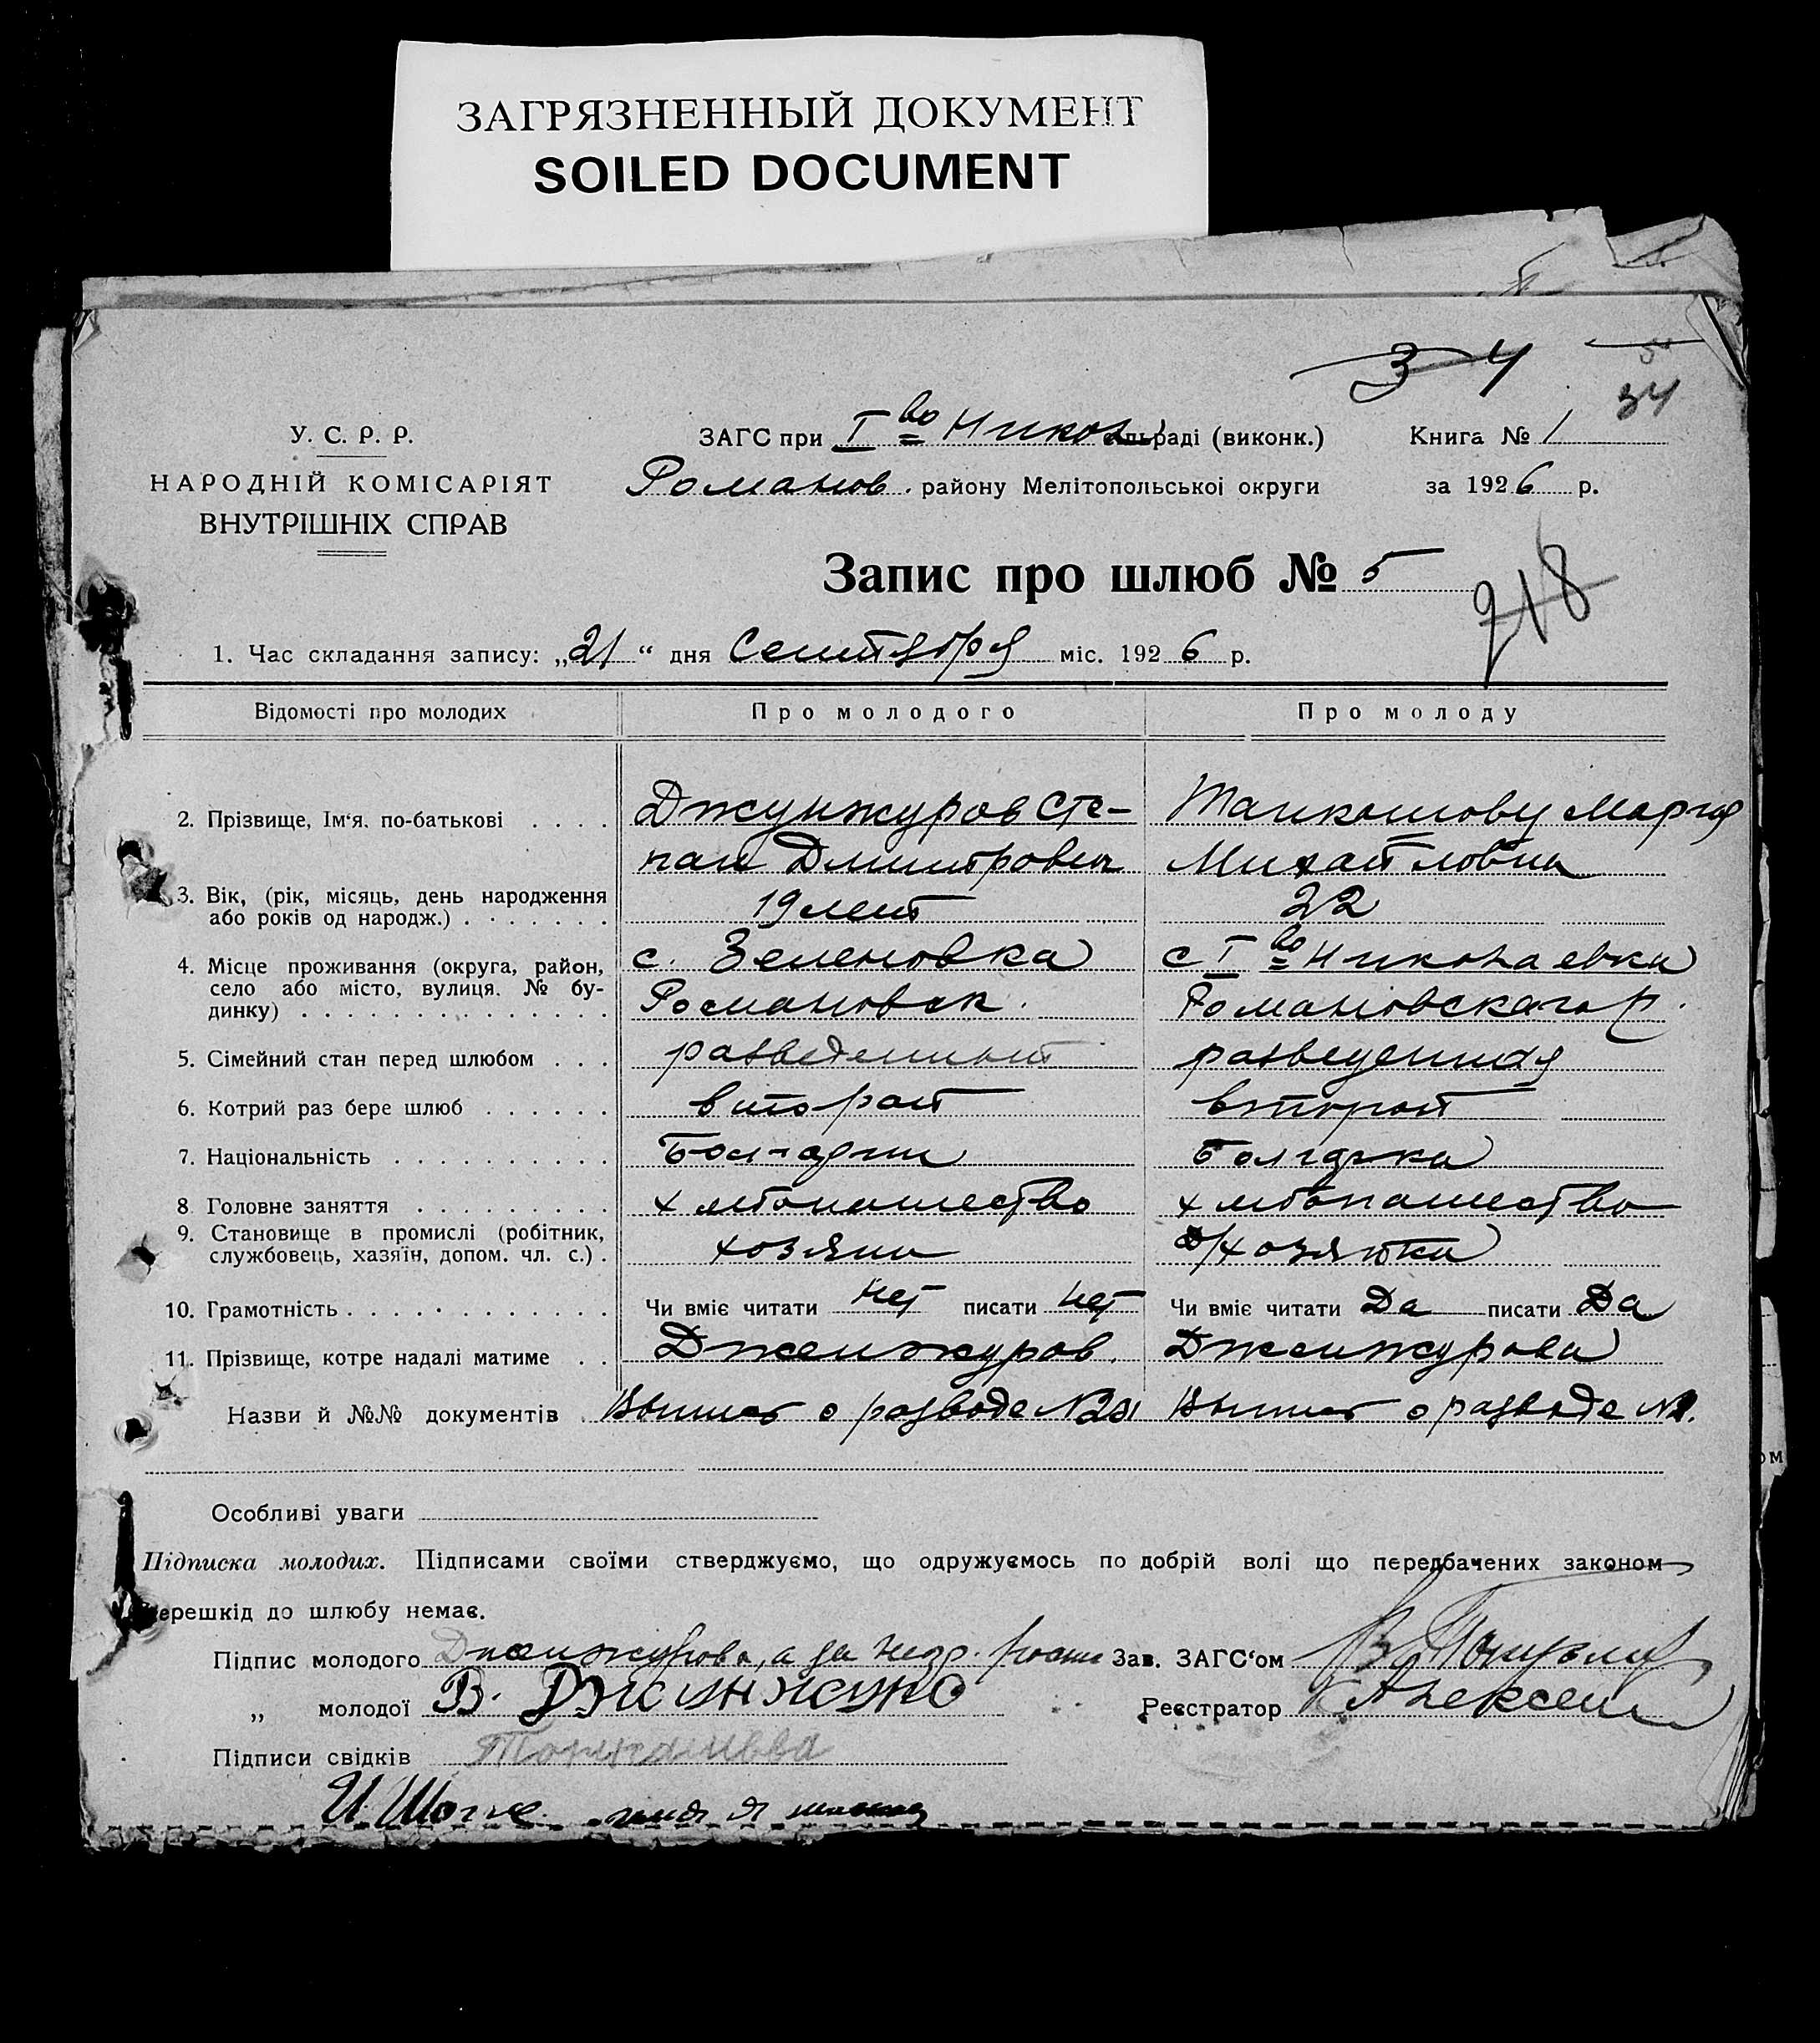 ЗАГРЯЗНЕННЫЙ ДОКУМЕНТ
SOILED DOCUMENT
3 4
34
У. С. Р. Р.
НАРОДНІЙ КОМІСАРІЯТ
ВНУТРІШНІХ СПРАВ
ЗАГС при I во Никол сільраді (виконк.)
Романов. району Мелітопольської округи
Книга № 1
за 1926 р.
Запис про шлюб № 5
218
1. Час складання запису: „21“ дня Сентября міс. 1926 р.
Відомості про молодих Про молодого Про молоду
2. Прізвище, Ім‘я, по-батькові . . . . Джунжуров Сте- Мария
пан Дмитрович Михайловна
3. Вік, (рік, місяць, день народження
або років од народж.) . . . . . . 19 лет 22
4. Місце проживання (округа, район, с. Зеленовка с I во Николаевки
село або місто, вулиця, № бу- Романовск. Романовского р.
динку) . . . . . . . . . . . . . .
5. Сімейний стан перед шлюбом . . . разведенный разведенная
6. Котрий раз бере шлюб . . . . . . второй второй
7. Національність . . . . . . . . . . Болгарин Болгарка
8 Головне заняття . . . . . . . . . хлебопашество хлебопашество
9. Становище в промислі (робітник,
службовець, хазяїн, допом. чл. с.) . хозяин д/хозяйка
10. Грамотність . . . . . . . . . . . . Чи вміє читати нет писати нет Чи вміє читати Да писати Да
11. Прізвище, котре надалі матиме . . Дженжуров. Дженжурова
Назви й №№ документів . Выпись о разводе № Выпись о разводе №
Особливі уваги
Підписка молодих. Підписами своїми стверджуємо, що одружуємось по добрій волі що передбачених законом
перешкід до шлюбу немає.
Підпис молодого Дженжурова, а за негр. Зав. ЗАГС‘ом
„ молодої В. Реєстратор Алексеи
Підписи свідків
И